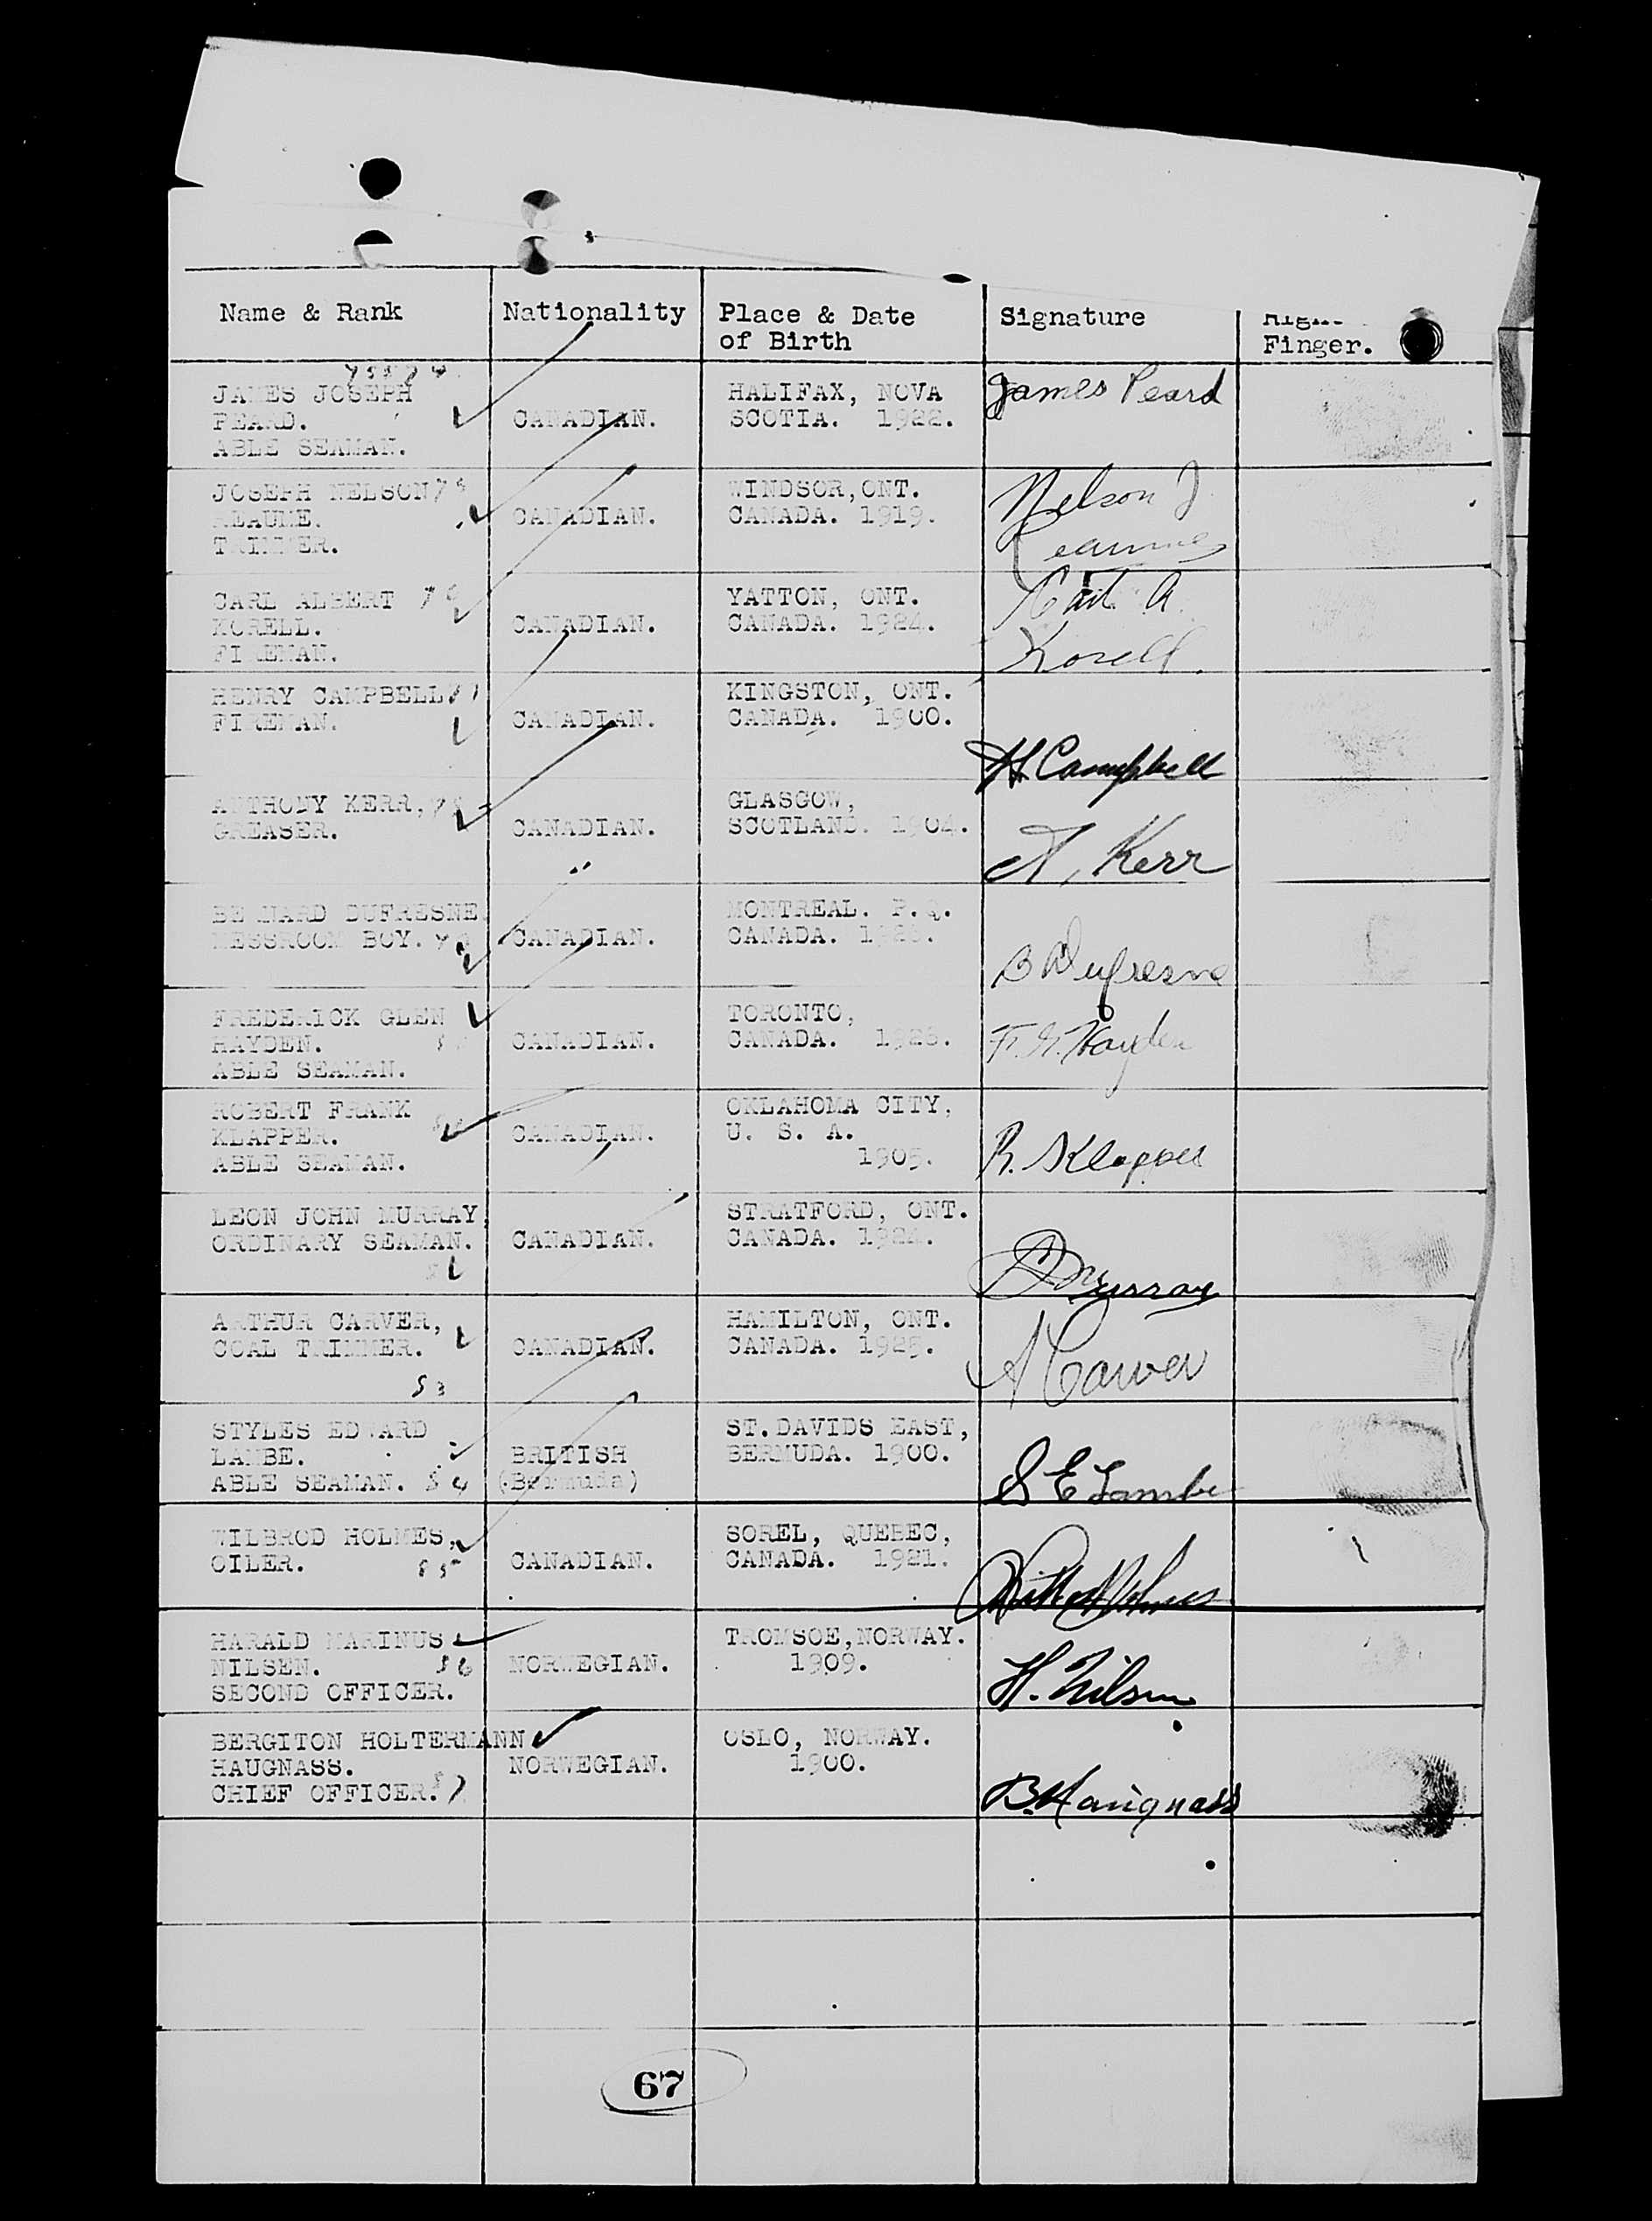 Name & Rank
Nationality
Place & Date
of Birth
Signature
Finger.
JAMES JOSEPH
PEARD.
ABLE SEAMAN.
CANADIAN.
HALIFAX, NOVA
SCOTIA. 1922.
James Peard
JOSEPH NELSON
REAUME.
TRIMMER.
CANADIAN.
WINDSOR, ONT.
CANADA. 1919.
Nelson J
Reaume
CARL ALBERT
KORELL.
FIREMAN.
CANADIAN.
YATTON, ONT.
CANADA. 1924.
Carl A.
Korell.
HENRY CAMPBELL.
FIREMAN.
CANADIAN.
KINGSTON, ONT.
CANADA. 1900.
H Campbell
ANTHONY KERR,
GREASER.
CANADIAN.
GLASGOW,
SCOTLAND. 1904.
A. Kerr
BERNARD DUFRESNE.
MESSROOM BOY.
CANADIAN.
MONTREAL. P.Q.
CANADA.
B Dufresne
FREDERICK GLEN
HAYDEN.
ABLE SEAMAN.
CANADIAN.
TORONTO,
CANADA.
F. G. Hayden
ROBERT FRANK
KLAPPER.
ABLE SEAMAN.
CANADIAN.
OKLAHOMA CITY,
U. S. A.
1905.
R. Klapper
LEON JOHN MURRAY,
ORDINARY SEAMAN.
CANADIAN.
STRATFORD, ONT.
CANADA. 1924.
Murray
ARTHUR CARVER,
COAL TRIMMER.
CANADIAN.
HAMILTON, ONT.
CANADA. 1925.
A Carver
STYLES EDWARD
LAMBE.
ABLE SEAMAN. 84
BRITISH
(Bermuda)
ST.DAVIDS EAST,
BERMUDA. 1900.
S E Lambe
WILBROD HOLMES,
OILER. 85
CANADIAN.
SOREL, QUEBEC,
CANADA. 1921.
Wilbrod Holmes
HARALD MARINUS
NILSEN. 86
SECOND OFFICER.
NORWEGIAN.
TROMSOE, NORWAY.
1909.
H. Nilsen
BERGITON HOLTERMANN
HAUGNASS.
CHIEF OFFICER. 87
NORWEGIAN.
OSLO, NORWAY.
1900.
B. Haugnass
67